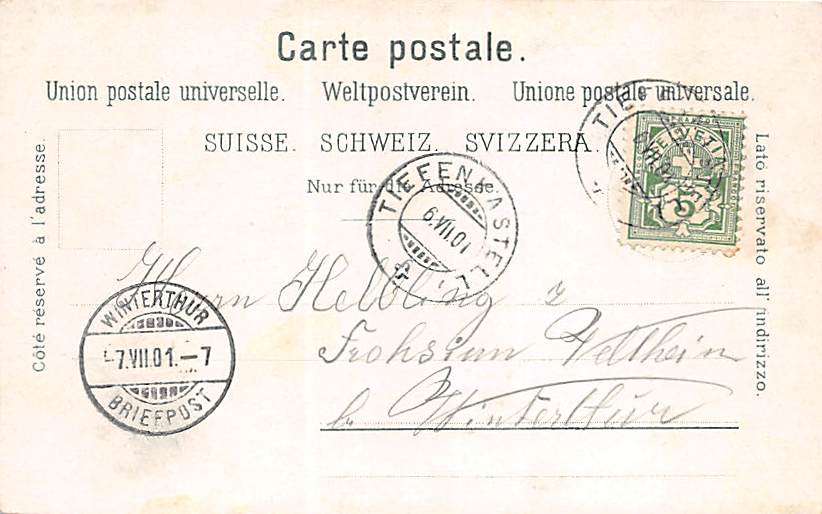 Carte postale.
Union postale universelle. Weltpostverein. Unione postale universale.
SUISSE. SCHWEIZ. SVIZZERA.
Nur für die Adresse.
Côté réservé à l'adresse.
Lato riservato all' indirizzo.
TIEFENKASTELL
6.VII.01
TIEF
HELVETIA
5
WINTERTHUR
7.VII.01.–7
BRIEFPOST
Herrn Helbling z
Frohsinn Veltheim
b. Winterthur